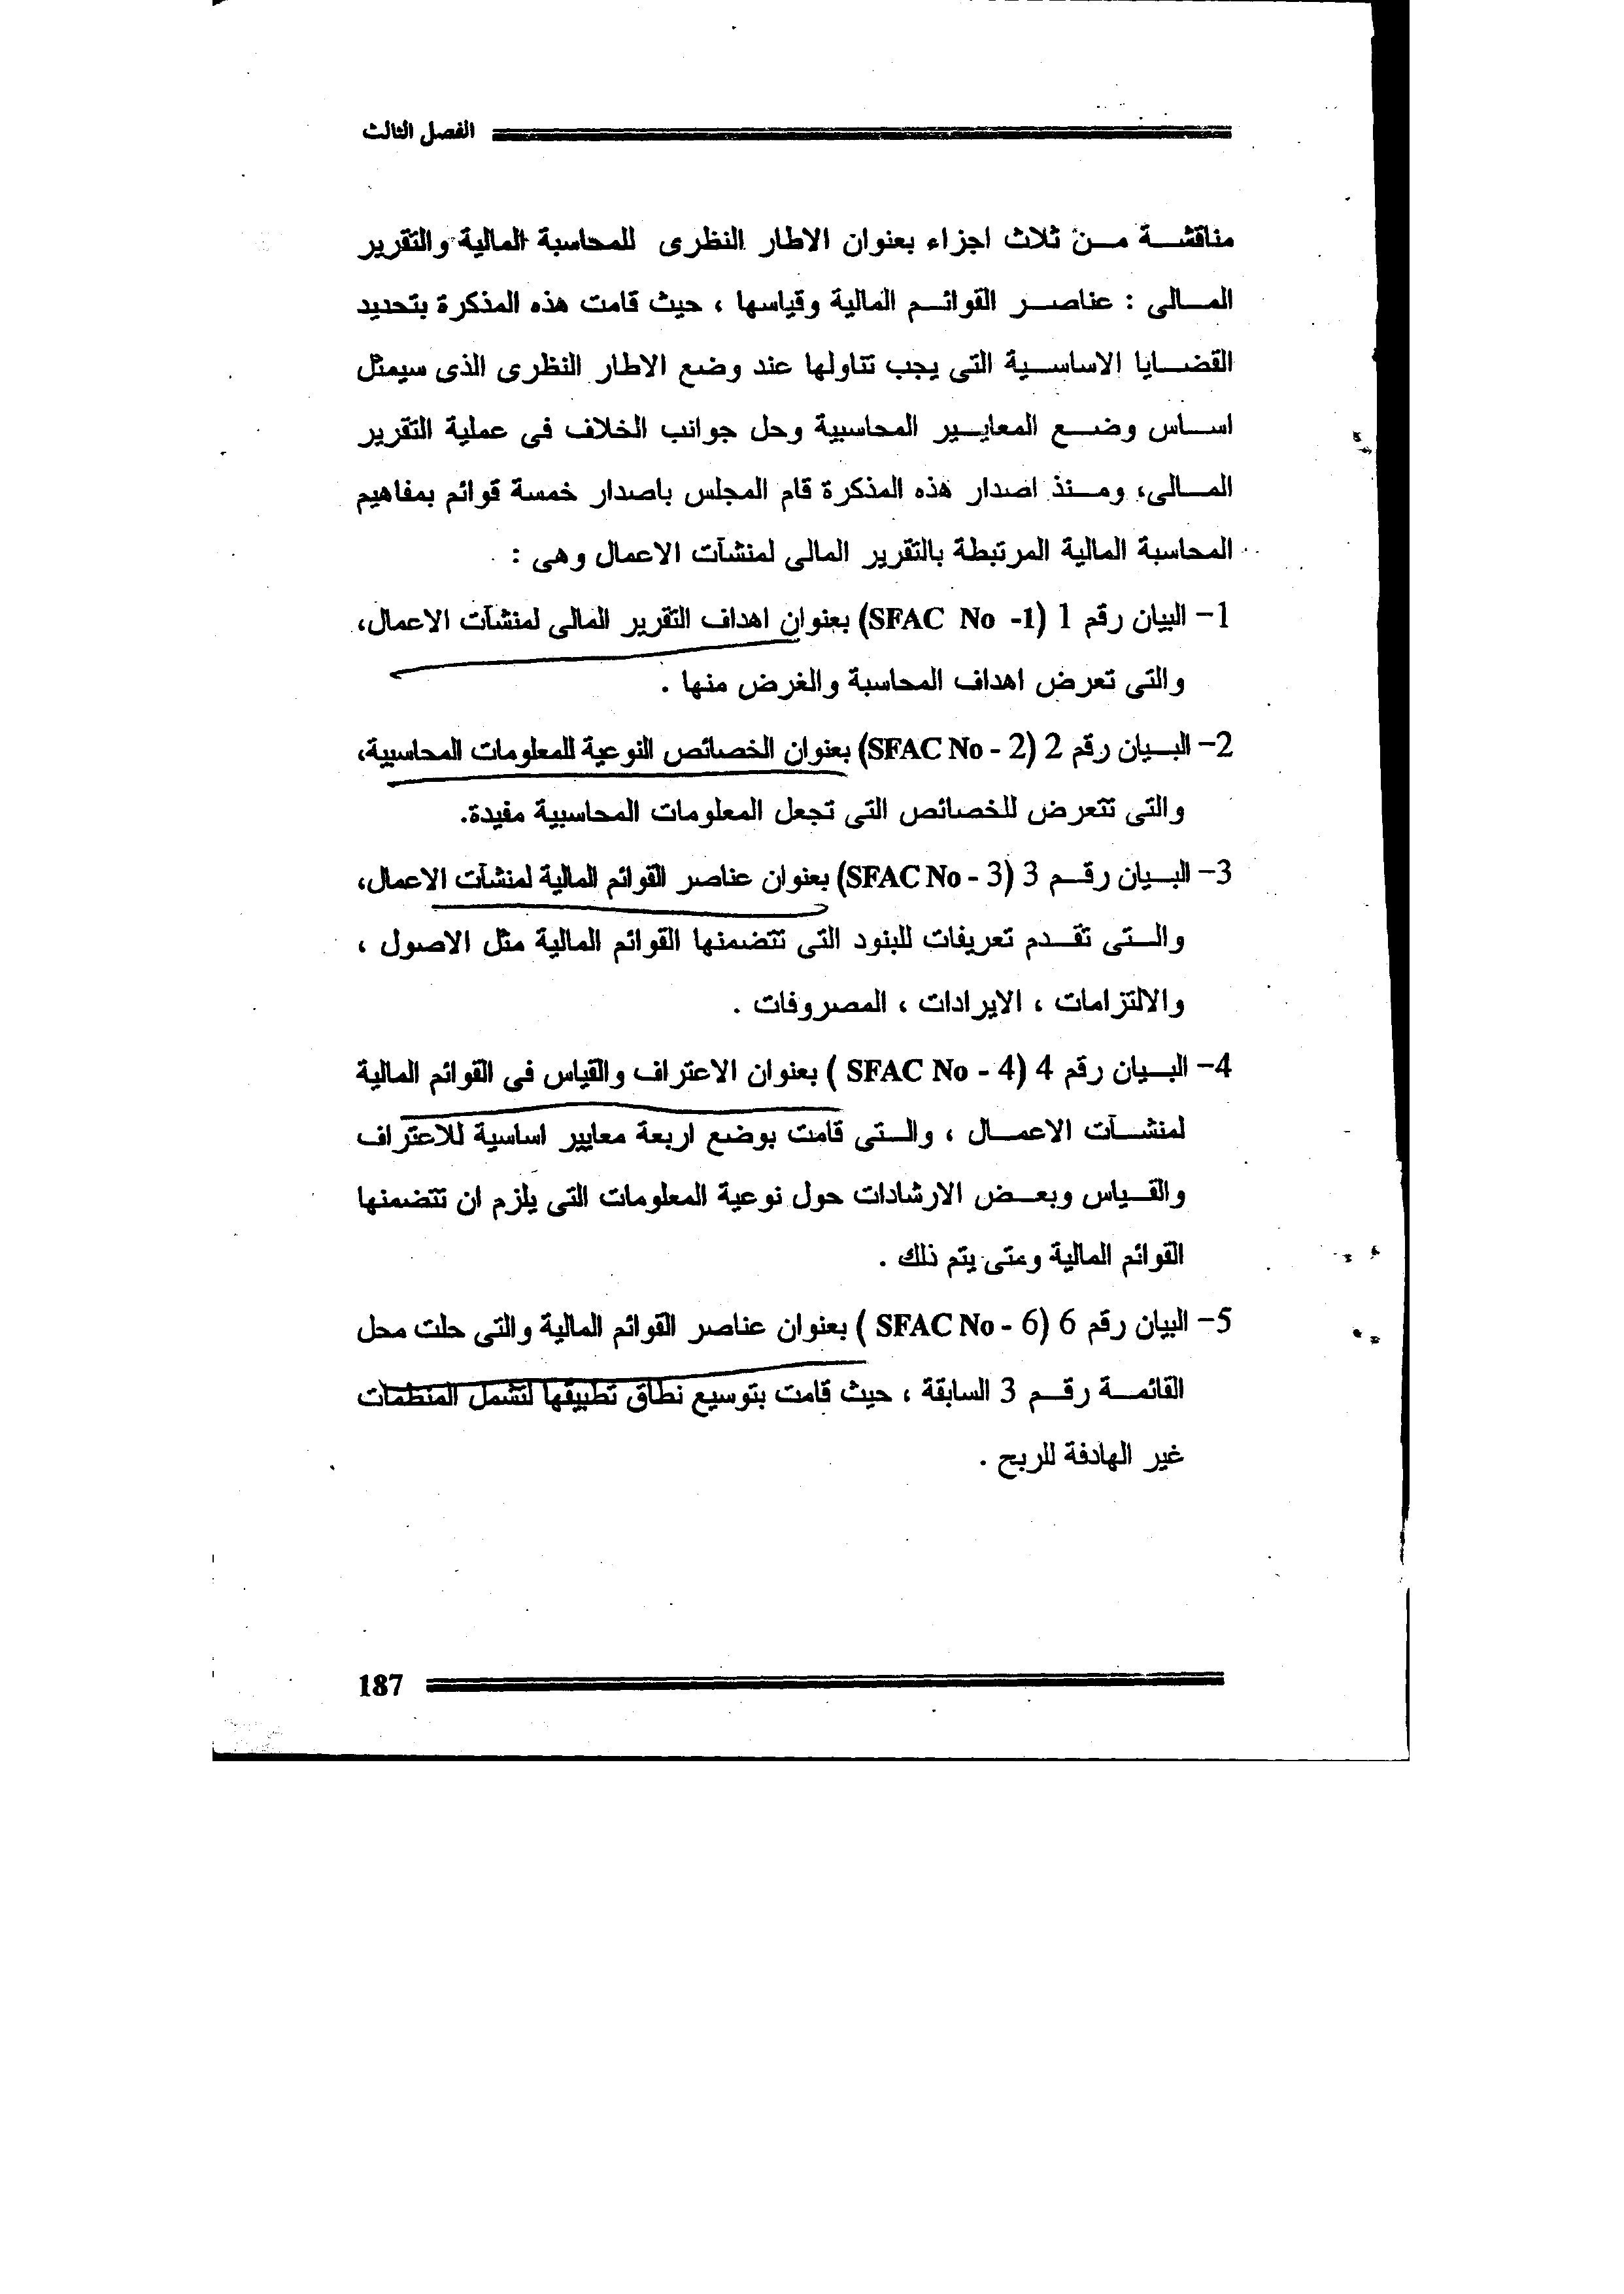 الفصل الثالث
مناقشة من ثلاث اجزاء بعنوان الاطار النظرى للمحاسبة المالية والتقرير
المالى : عناصر القوائم المالية وقياسها ، حيث قامت هذه المذكرة بتحديد
القضايا الاساسية التى يجب تتاولها عند وضع الاطار النظرى الذى سيمثل
اساس وضع المعايير المحاسبية وحل جوانب الخلاف فى عملية التقرير
المالى، ومنذ اصدار هذه المذكرة قام المجلس باصدار خمسة قوائم بمفاهيم
المحاسبة المالية المرتبطة بالتقرير المالى لمنشآت الاعمال وهى :
1- البيان رقم 1 (SFAC No -1) بعنوان اهداف التقرير المالى لمنشآت الاعمال،
والتى تعرض اهداف المحاسبة والغرض منها .
2- البيان رقم 2 (SFAC No - 2) بعنوان الخصائص النوعية للمعلومات المحاسبية،
والتى تتعرض للخصائص التى تجعل المعلومات المحاسبية مفيدة.
3- البيان رقم 3 (SFAC No - 3) بعنوان عناصر القوائم المالية لمنشآت الاعمال،
والتى تقدم تعريفات للبنود التى تتضمنها القوائم المالية مثل الاصول ،
والالتزامات ، الايرادات ، المصروفات .
4- البيان رقم 4 (SFAC No - 4 ) بعنوان الاعتراف والقياس فى القوائم المالية
لمنشآت الاعمال ، والتى قامت بوضع اربعة معايير اساسية للاعتراف
والقياس وبعض الارشادات حول نوعية المعلومات التى يلزم ان تتضمنها
القوائم المالية ومتى يتم ذلك .
5- البيان رقم 6 (SFAC No - 6 ) بعنوان عناصر القوائم المالية والتى حلت محل
القائمة رقم 3 السابقة ، حيث قامت بتوسيع نطاق تطبيقها لتشمل المنظمات
غير الهادفة للربح .
187